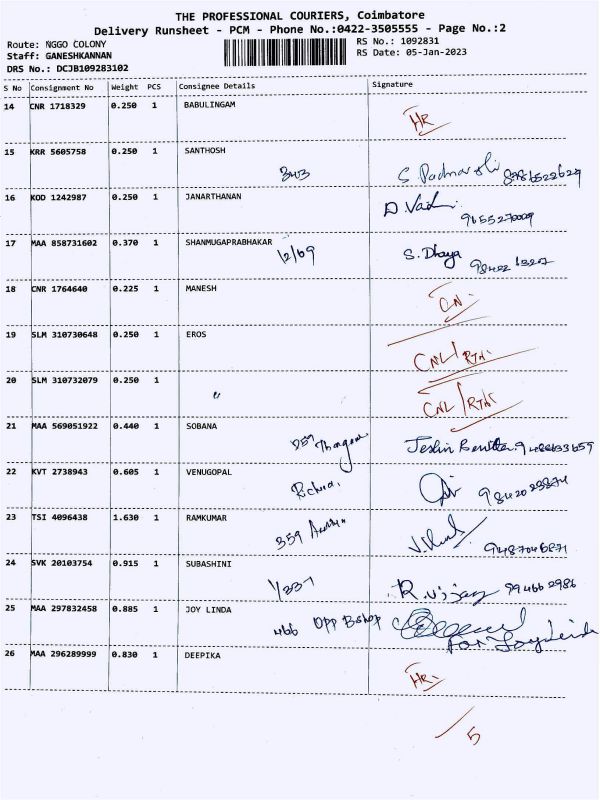 THE PROFESSIONAL COURIERS, Coimbatore
Delivery Runsheet - PCM - Phone No.:0422-3505555 - Page No.:2
Route: NGGO COLONY
RS No.: 1092831
Staff: GANESHKANNAN
RS Date: 05-Jan-2023
DRS No.: DCJB109283102
S No Consignment No Weight PCS Consignee Details Signature
14 CNR 1718329 0.250 1 BABULINGAM
HR
15 KRR 5605758 0.250 1 SANTHOSH
343 S.
16 KOD 1242987 0.250 1 JANARTHANAN
D.
9655270009
17 MAA 858731602 0.370 1 SHANMUGAPRABHAKAR
12/69 S. Dhaya
18 CNR 1764640 0.225 1 MANESH
CN.
19 SLM 310730648 0.250 1 EROS
CNL/RTN
20 SLM 310732079 0.250 1
" CNL/RTN
21 MAA 569051922 0.440 1 SOBANA
359 Jeslin
22 KVT 2738943 0.605 1 VENUGOPAL
23 TSI 4096438 1.630 1 RAMKUMAR
359
24 SVK 20103754 0.915 1 SUBASHINI
R. Vijay 994662986
25 MAA 297832458 0.885 1 JOY LINDA
466 Opp Bshop
for
26 MAA 296289999 0.830 1 DEEPIKA
HR
5